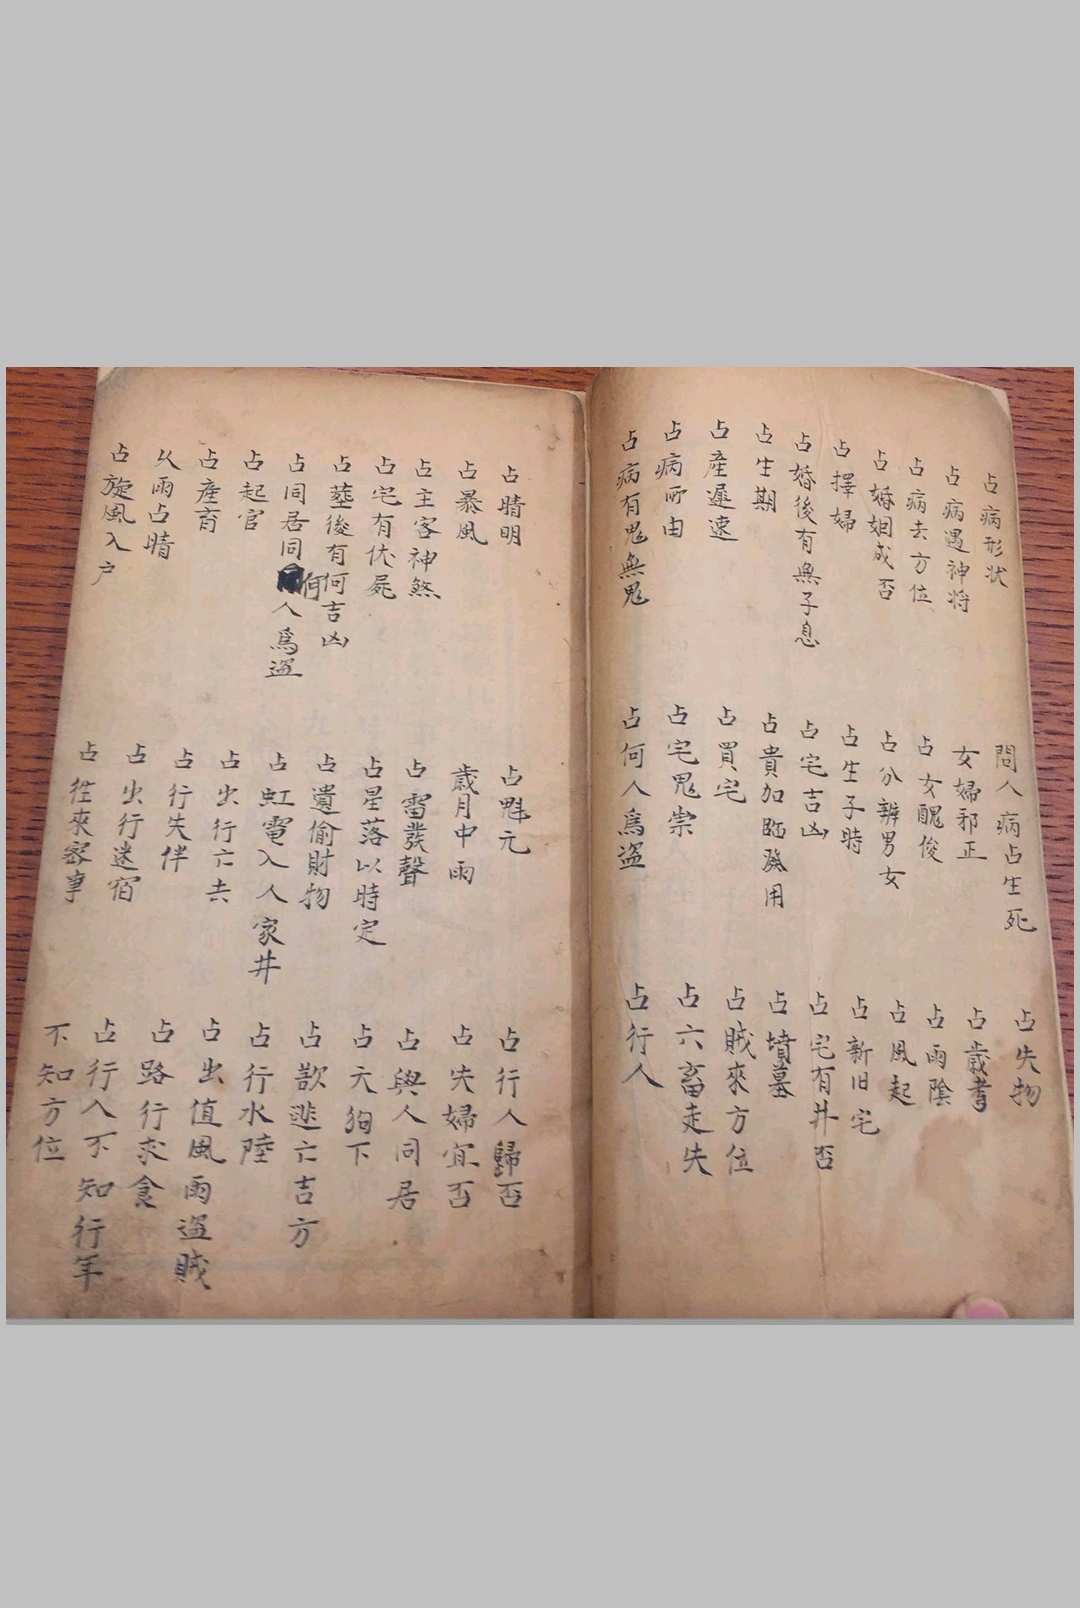 占病形状 問人病占生死 占失物
占病遇神将 女婦邪正 占歲
占病去方位 占女醜俊 占雨陰
占婚姻成否 占分辨男女 占風起
占擇婦 占生子時 占新旧宅
占婚後有無子息 占宅吉凶 占宅有井否
占生期 占貴加臨發用 占墳墓
占產遲速 占買宅 占賊來方位
占病所由 占宅鬼祟 占六畜走失
占病有鬼無鬼 占何人爲盗 占行人
占晴明 占魁元 占行人歸否
占暴風 歲月中雨 占失婦宜否
占主客神煞 占雷發聲 占與人同居
占宅有伏屍 占星落以時定 占天狗下
占塟後有何吉凶 占遺偷財物 占逃亡吉方
占同居同何人爲盗 占虹電入人家井 占行水陸
占起官 占出行亡去 占出值風雨盗賊
占產育 占行失伴 占路行求食
久雨占晴 占出行迷宿 占行人不知行年
占旋風入户 占往來客事 不知方位